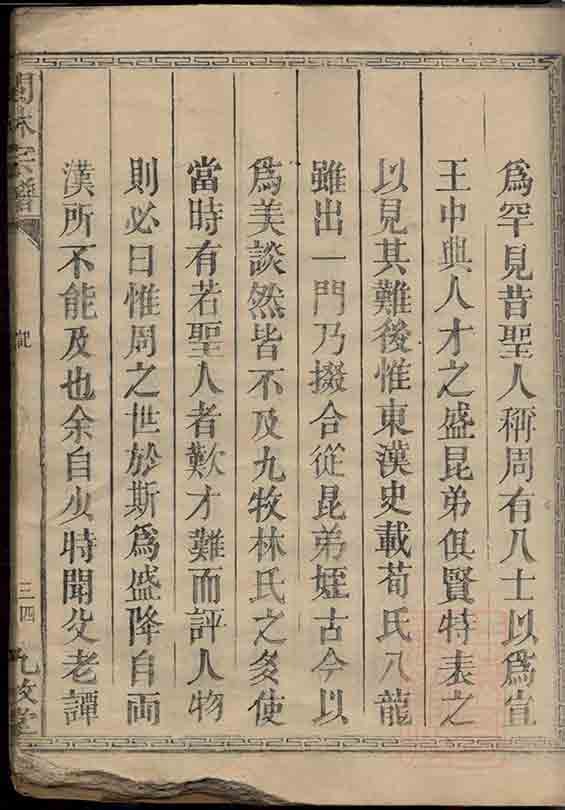 爲罕見昔聖人稱周有八士以爲宣
王中興人才之盛昆弟俱賢特表之
以見其難後惟東漢史載荀氏八龍
雖出一門乃掇合從昆弟姪古今以
爲美談然皆不及九牧林氏之多使
當時有若聖人者歎才難而評人物
則必曰惟周之世於斯爲盛降自兩
漢所不能及也余自少時聞父老譚
林宗譜
記
三四
九牧堂